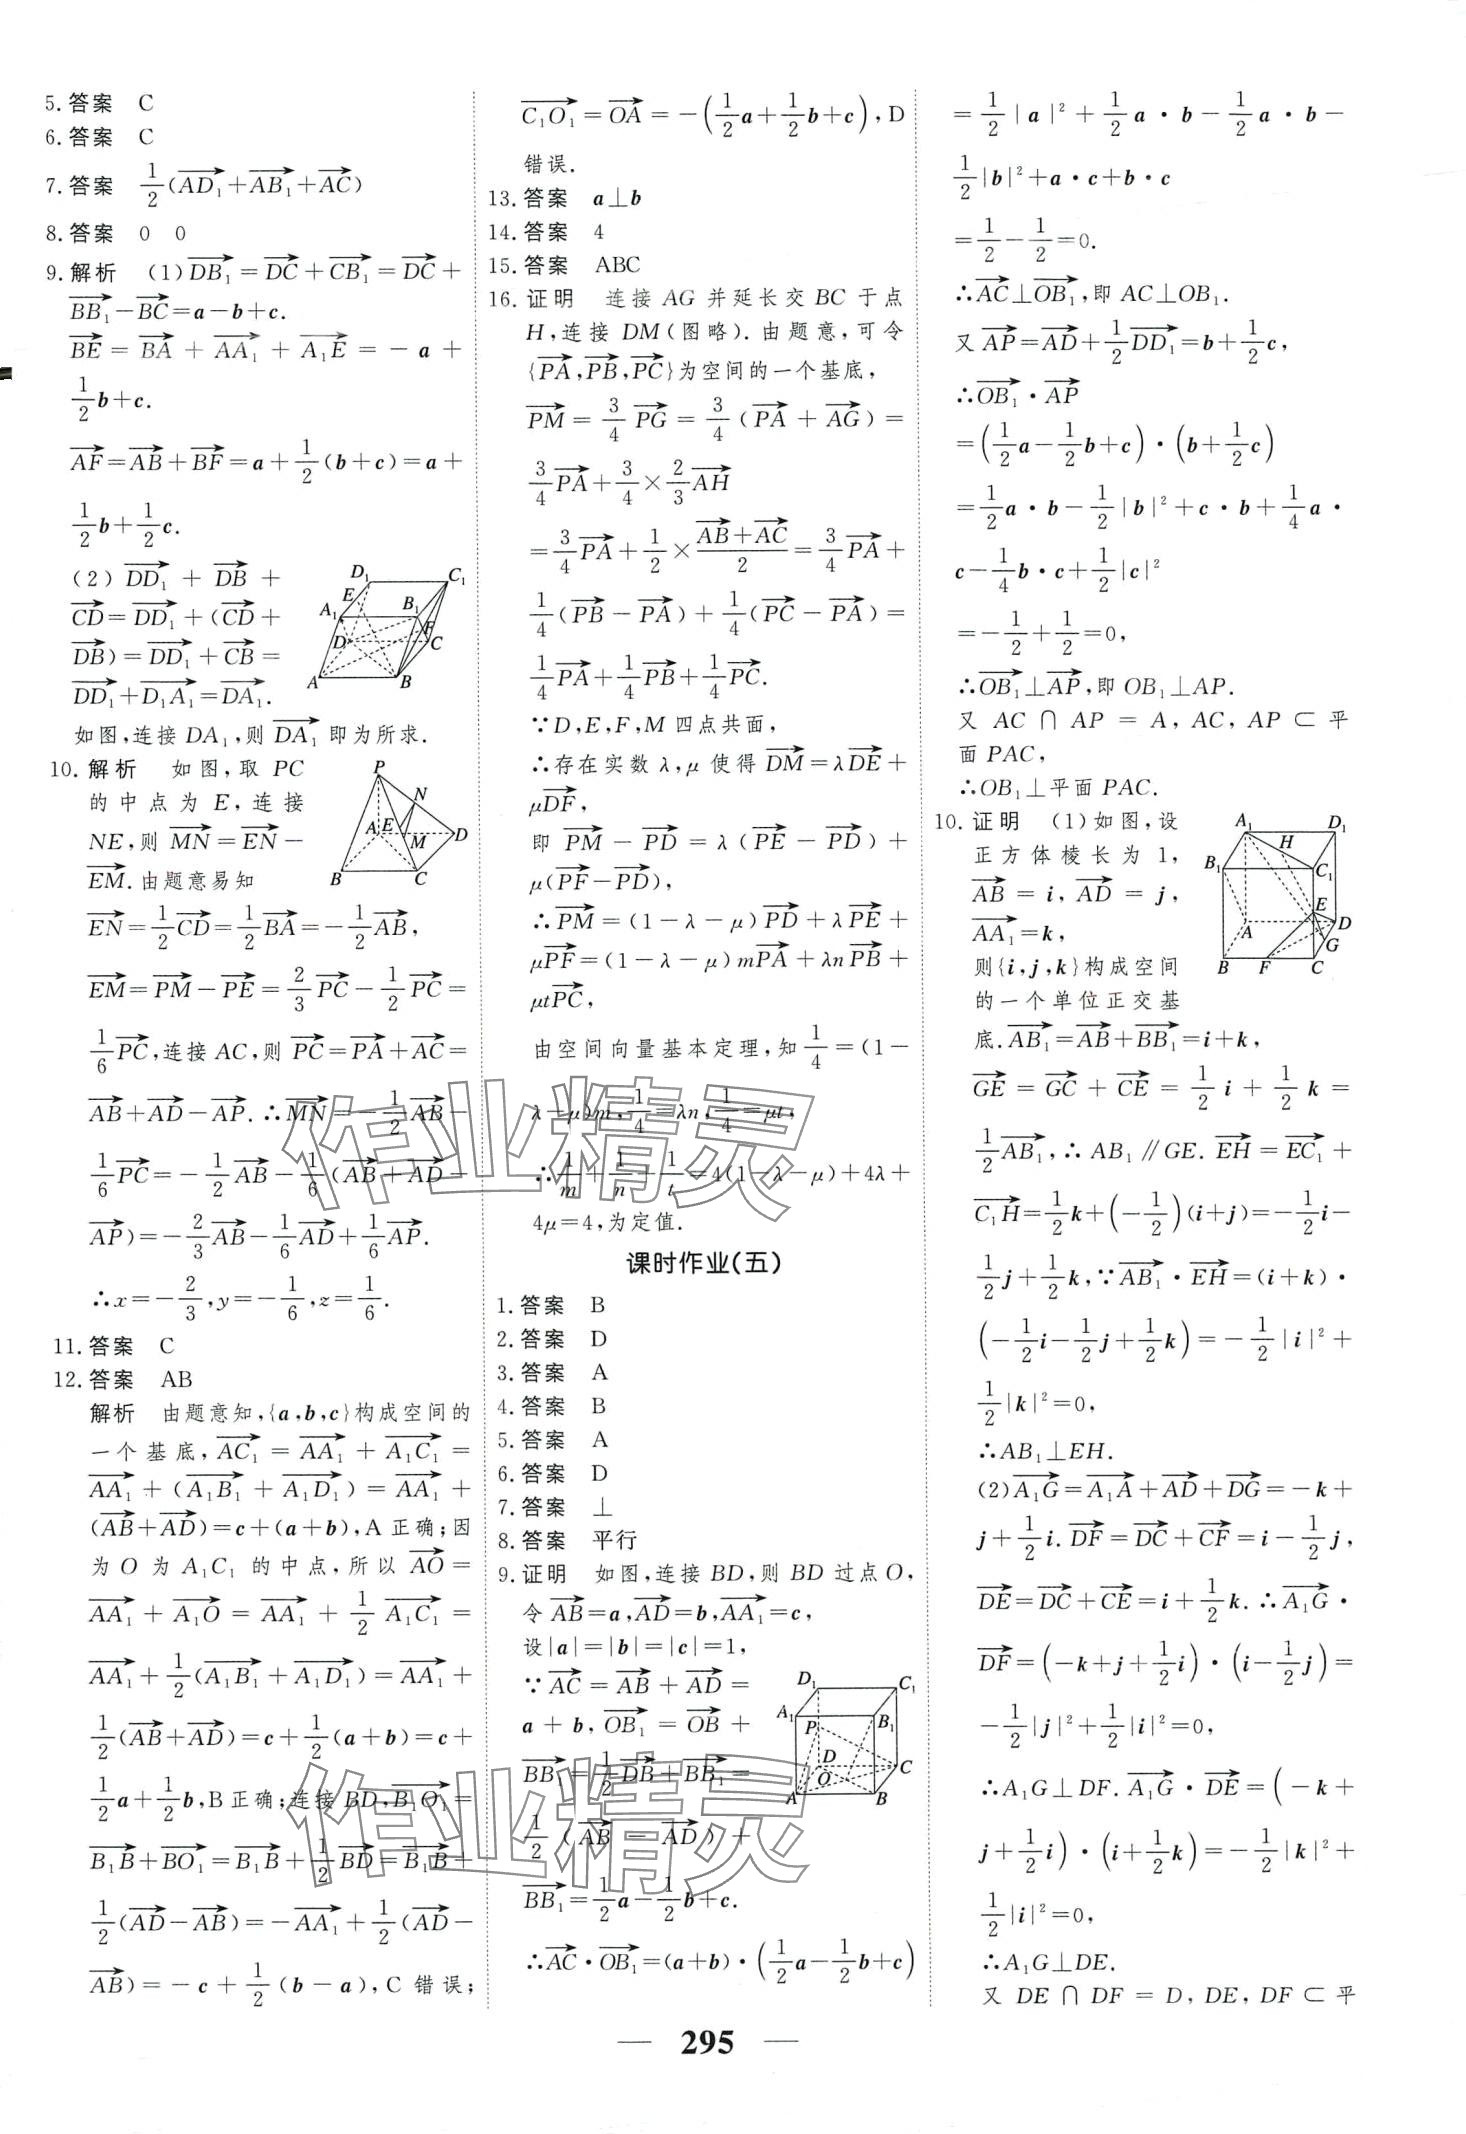 5.答案 C
6.答案 C
7.答案 1/2(AD₁→+AB₁→+AC→)
8.答案 0 0
9.解析 (1)DB₁→=DC→+CB₁→=DC→+
BB₁→-BC→=a-b+c.
BE→=BA→+AA₁→+A₁E→=-a+
1/2b+c.
AF→=AB→+BF→=a+1/2(b+c)=a+
1/2b+1/2c.
(2)DD₁→+DB→+
CD→=DD₁→+(CD→+
DB→)=DD₁→+CB→=
DD₁→+D₁A₁→=DA₁→.
D₁ C₁ E A₁ B₁ F D C A B
如图,连接DA₁,则DA₁→即为所求.
10.解析 如图,取PC
的中点为E,连接
NE,则MN→=EN→-
EM→.由题意易知
P N A E M D B C
EN→=1/2CD→=1/2BA→=-1/2AB→,
EM→=PM→-PE→=2/3PC→-1/2PC→=
1/6PC→,连接AC,则PC→=PA→+AC→=
AB→+AD→-AP→.∴MN→=-1/2AB→-
1/6PC→=-1/2AB→-1/6(AB→+AD→-
AP→)=-2/3AB→-1/6AD→+1/6AP→.
∴x=-2/3,y=-1/6,z=1/6.
11.答案 C
12.答案 AB
解析 由题意知,{a,b,c}构成空间的
一个基底,AC₁→=AA₁→+A₁C₁→=
AA₁→+(A₁B₁→+A₁D₁→)=AA₁→+
(AB→+AD→)=c+(a+b),A正确;因
为O为A₁C₁的中点,所以AO→=
AA₁→+A₁O→=AA₁→+1/2A₁C₁→=
AA₁→+1/2(A₁B₁→+A₁D₁→)=AA₁→+
1/2(AB→+AD→)=c+1/2(a+b)=c+
1/2a+1/2b,B正确;连接BD,B₁O₁→=
B₁B→+BO₁→=B₁B→+1/2BD→=B₁B→+
1/2(AD→-AB→)=-AA₁→+1/2(AD→-
AB→)=-c+1/2(b-a),C错误;
C₁O₁→=OA→=-(1/2a+1/2b+c),D
错误.
13.答案 a⊥b
14.答案 4
15.答案 ABC
16.证明 连接AG并延长交BC于点
H,连接DM(图略).由题意,可令
{PA→,PB→,PC→}为空间的一个基底,
PM→=3/4PG→=3/4(PA→+AG→)=
3/4PA→+3/4×2/3AH→
=3/4PA→+1/2×(AB→+AC→)/2=3/4PA→+
1/4(PB→-PA→)+1/4(PC→-PA→)=
1/4PA→+1/4PB→+1/4PC→.
∵D,E,F,M四点共面,
∴存在实数λ,μ使得DM→=λDE→+
μDF→,
即PM→-PD→=λ(PE→-PD→)+
μ(PF→-PD→),
∴PM→=(1-λ-μ)PD→+λPE→+
μPF→=(1-λ-μ)mPA→+λnPB→+
μtPC→,
由空间向量基本定理,知1/4=(1-
λ-μ)m,1/4=λn,1/4=μt,
∴1/m+1/n+1/t=4(1-λ-μ)+4λ+
4μ=4,为定值.
课时作业(五)
1.答案 B
2.答案 D
3.答案 A
4.答案 B
5.答案 A
6.答案 D
7.答案 ⊥
8.答案 平行
9.证明 如图,连接BD,则BD过点O,
令AB→=a,AD→=b,AA₁→=c,
设|a|=|b|=|c|=1,
∵AC→=AB→+AD→=
a+b,OB₁→=OB→+
BB₁→=1/2DB→+BB₁→=
1/2(AB→-AD→)+
BB₁→=1/2a-1/2b+c.
D₁ C₁ A₁ B₁ P D C O A B
∴AC→·OB₁→=(a+b)·(1/2a-1/2b+c)
=1/2|a|²+1/2a·b-1/2a·b-
1/2|b|²+a·c+b·c
=1/2-1/2=0.
∴AC→⊥OB₁→,即AC⊥OB₁.
又AP→=AD→+1/2DD₁→=b+1/2c,
∴OB₁→·AP→
=(1/2a-1/2b+c)·(b+1/2c)
=1/2a·b-1/2|b|²+c·b+1/4a·
c-1/4b·c+1/2|c|²
=-1/2+1/2=0,
∴OB₁→⊥AP→,即OB₁⊥AP.
又AC∩AP=A,AC,AP⊂平
面PAC,
∴OB₁⊥平面PAC.
10.证明 (1)如图,设
正方体棱长为1,
AB→=i,AD→=j,
AA₁→=k,
则{i,j,k}构成空间
的一个单位正交基
底.AB₁→=AB→+BB₁→=i+k,
A₁ D₁ H B₁ C₁ E A D G B F C
GE→=GC→+CE→=1/2i+1/2k=
1/2AB₁→,∴AB₁∥GE.EH→=EC₁→+
C₁H→=1/2k+(-1/2)(i+j)=-1/2i-
1/2j+1/2k,∵AB₁→·EH→=(i+k)·
(-1/2i-1/2j+1/2k)=-1/2|i|²+
1/2|k|²=0,
∴AB₁⊥EH.
(2)A₁G→=A₁A→+AD→+DG→=-k+
j+1/2i.DF→=DC→+CF→=i-1/2j,
DE→=DC→+CE→=i+1/2k.∴A₁G→·
DF→=(-k+j+1/2i)·(i-1/2j)=
-1/2|j|²+1/2|i|²=0,
∴A₁G⊥DF.A₁G→·DE→=(-k+
j+1/2i)·(i+1/2k)=-1/2|k|²+
1/2|i|²=0,
∴A₁G⊥DE.
又DE∩DF=D,DE,DF⊂平
— 295 —
作业精灵
作业精灵